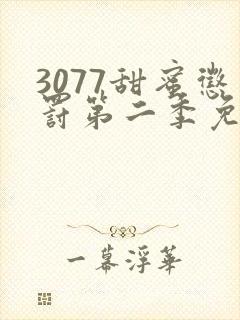 3077甜蜜惩
罚第二季免
一幕浮华